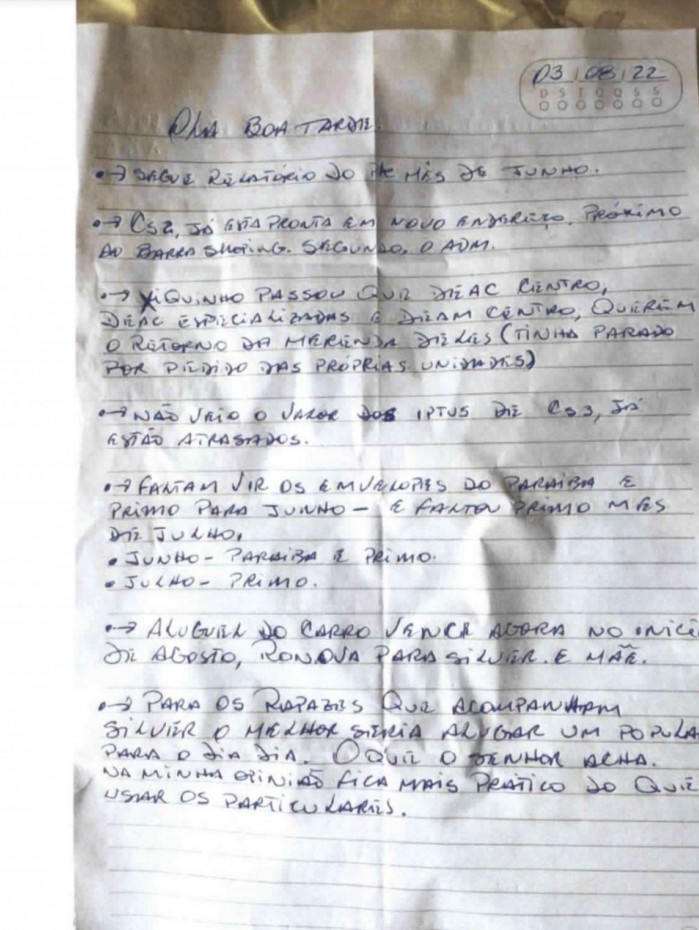 03 08 22
D S T Q Q S S
OLA BOA TARDE.
•→ SEGUE RELATÓRIO DO MÊS DE JUNHO.
•→ CS2, JÁ ESTA PRONTA EM NOVO ENDEREÇO. PRÓXIMO
AO BARRA SHOPING. SEGUNDO, O ADM.
•→ XIQUINHO PASSOU QUE DEAC CENTRO,
DEAC ESPECIALIZADAS E DEAM CENTRO, QUEREM
O RETORNO DA MERENDA DELES (TINHA PARADO
POR PEDIDO DAS PRÓPRIAS UNIDADES)
•→ NÃO VEIO O VALOR DOS IPTUS DE CS3, JÁ
ESTÃO ATRASADOS.
•→ FALTAM VIR OS ENVELOPES DO PARAIBA E
PRIMO PARA JUNHO - E FALTOU PRIMO MÊS
DE JULHO,
• JUNHO - PARAIBA E PRIMO.
• JULHO - PRIMO.
•→ ALUGUEL DO CARRO VENCE AGORA NO INICI
DE AGOSTO, RONOVA PARA SILVER. E MÃE.
•→ PARA OS RAPAZES QUE ACOMPANHAM
SILVER O MELHOR SERIA ALUGAR UM POPULA
PARA O DIA DIA. O QUE O SENHOR ACHA.
NA MINHA OPINIÃO FICA MAIS PRATICO DO QUE
USAR OS PARTICULARES.